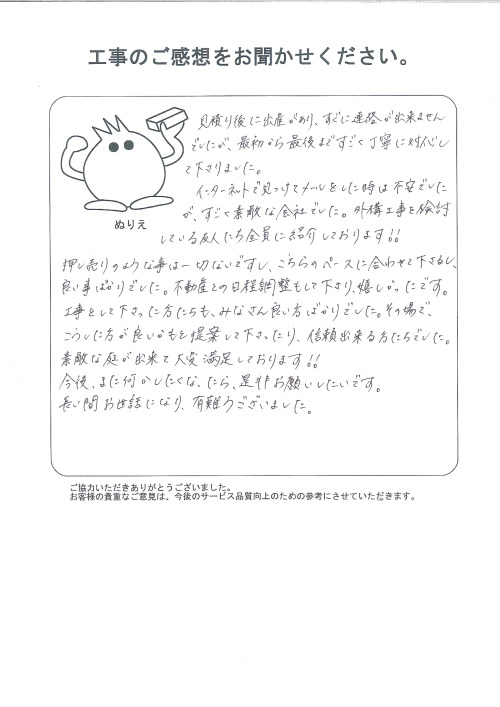 工事のご感想をお聞かせください。
見積り後に出産があり、すぐに連絡が出来ません
でしたが、最初から最後まですごく丁寧に対応し
て下さりました。
インターネットで見つけてメールをした時は不安でした
が、すごく素敵な会社でした。外構工事を検討
している友人たち全員に紹介しております!!
ぬりえ
押し売りのような事は一切ないですし、こちらのペースに合わせて下さるし、
良い事ばかりでした。不動産との日程調整もして下さり、嬉しかったです。
工事をして下さった方たちも、みなさん良い方ばかりでした。その場で、
こうした方が良いかもと提案して下さったり、信頼出来る方たちでした。
素敵な庭が出来て大変満足しております!!
今後、また何かしたくなったら、是非お願いしたいです。
長い間お世話になり、有難うございました。
ご協力いただきありがとうございました。
お客様の貴重なご意見は、今後のサービス品質向上のための参考にさせていただきます。